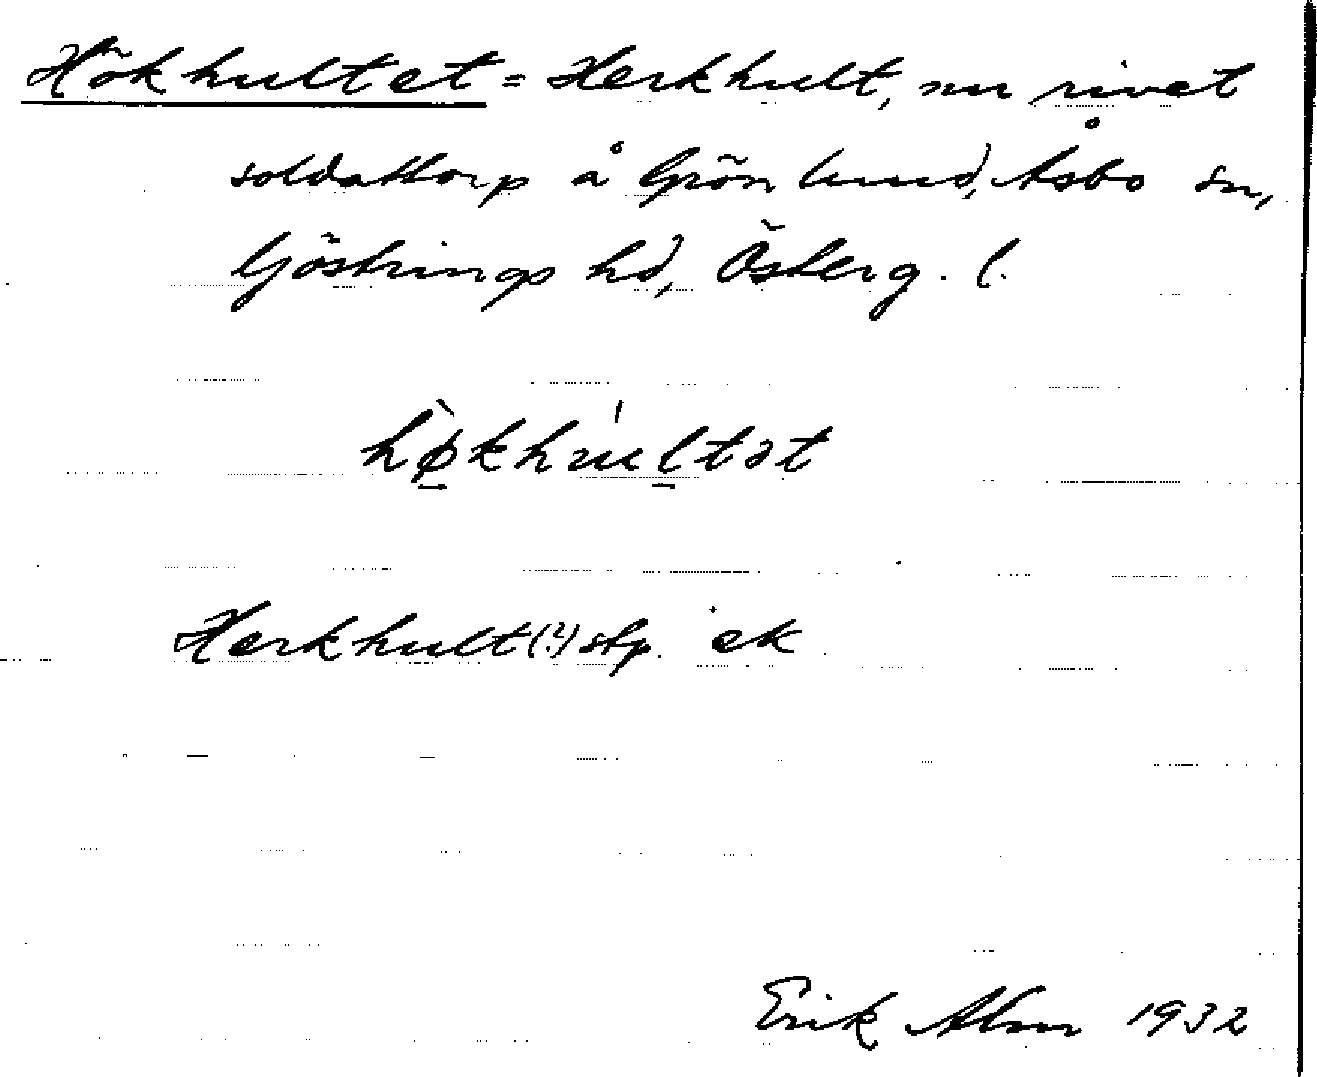 Hökhultet = Herkhult, nu rivet
soldattorp å Grönlund, Åsbo sn,
Göstrings hd, Österg. l.
hø̀khu̍ltət
Herkhult(?) stp. ek
Erik Alm 1932